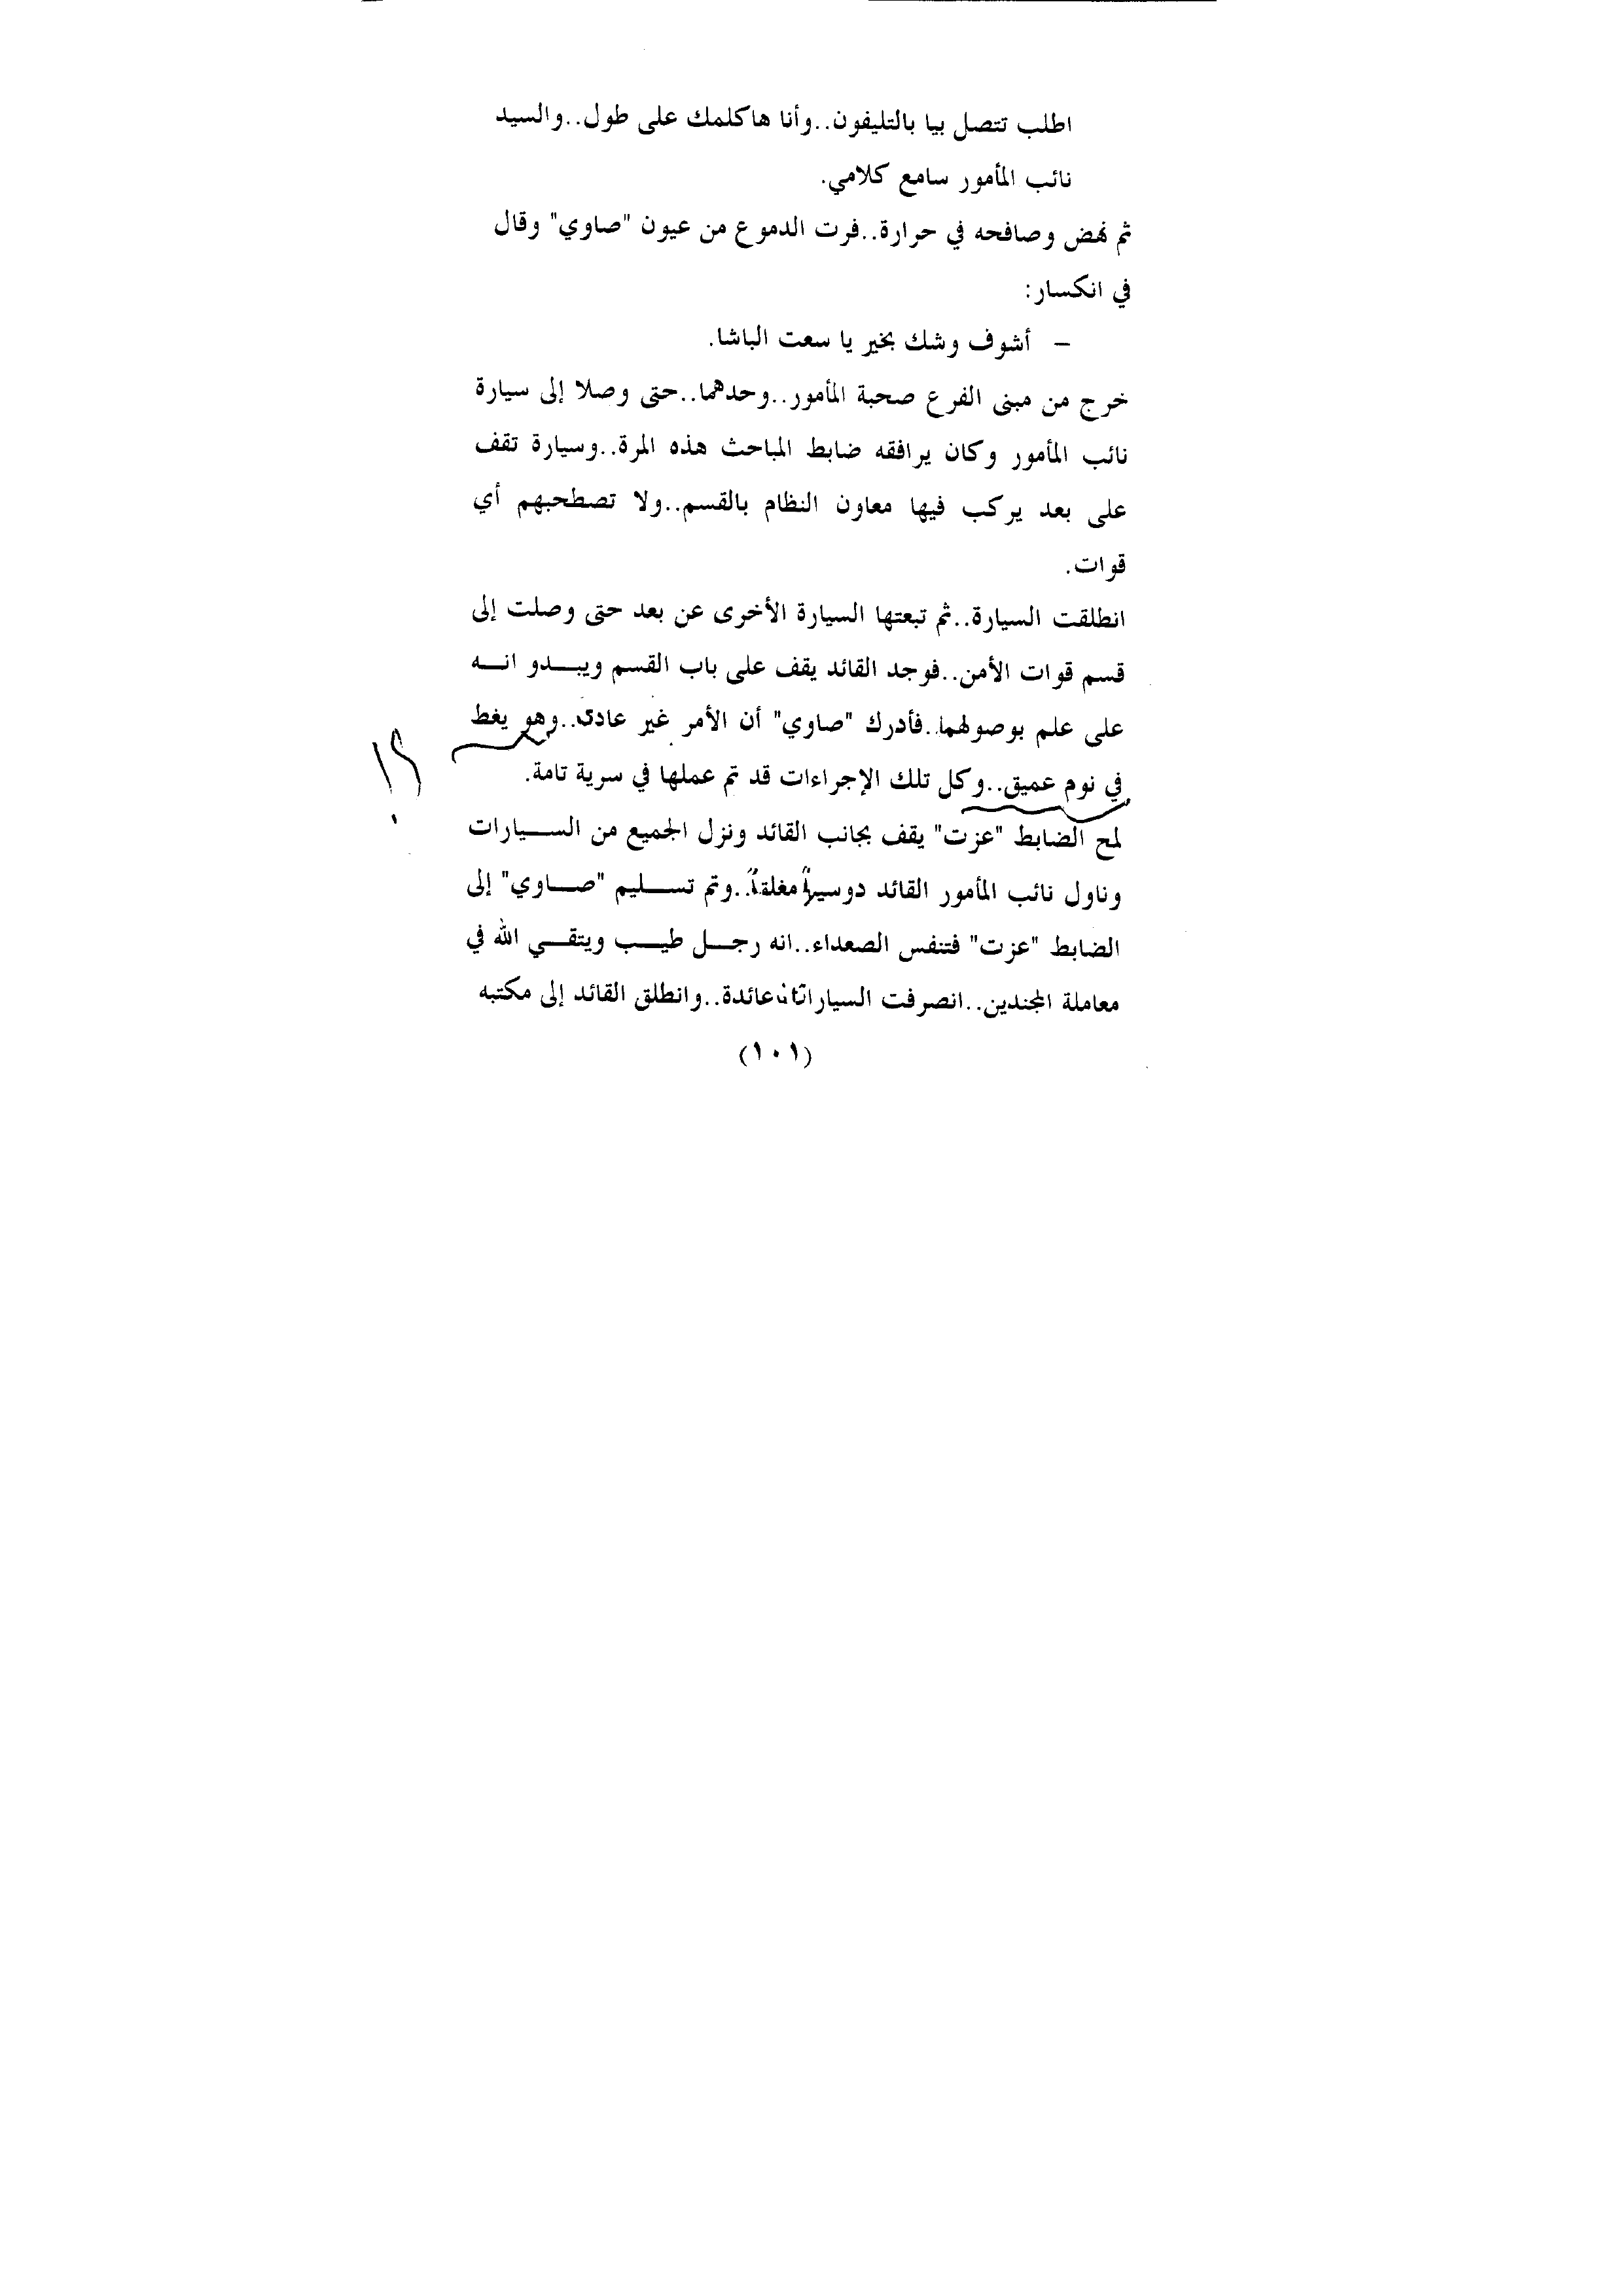 اطلب تتصل بيا بالتليفون..وأنا هاكلمك على طول..والسيد
نائب المأمور سامع كلامي.
ثم نهض وصافحه في حرارة..فرت الدموع من عيون "صاوي" وقال
في انكسار:
– أشوف وشك بخير يا سعت الباشا.
خرج من مبنى الفرع صحبة المأمور..وحدهما..حتى وصلا إلى سيارة
نائب المأمور وكان يرافقه ضابط المباحث هذه المرة..وسيارة تقف
على بعد يركب فيها معاون النظام بالقسم..ولا تصطحبهم أي
قوات.
انطلقت السيارة..ثم تبعتها السيارة الأخرى عن بعد حتى وصلت إلى
قسم قوات الأمن..فوجد القائد يقف على باب القسم ويبـــدو انـــه
على علم بوصولهما..فأدرك "صاوي" أن الأمر غير عادى..وهو يغط
في نوم عميق..وكل تلك الإجراءات قد تم عملها في سرية تامة.
؟!
لمح الضابط "عزت" يقف بجانب القائد ونزل الجميع من الســـيارات
وناول نائب المأمور القائد دوسيهاً مغلقاً..وتم تســـليم "صـــاوي" إلى
الضابط "عزت" فتنفس الصعداء..انه رجـــل طيـــب ويتقـــي الله في
معاملة المجندين..انصرفت السيارتان عائدة..وانطلق القائد إلى مكتبه
(١٠١)